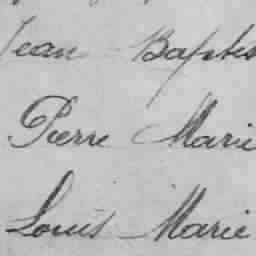 Jean Baptis
Pierre Marie
Louis Marie